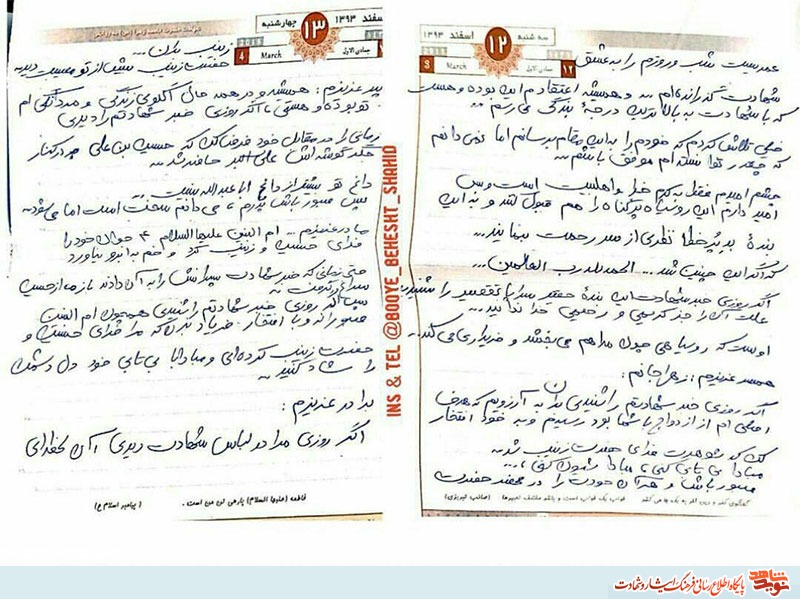 سه شنبه ۱۲ اسفند ۱۳۹۳
3 March جمادی الاول ۱۲
عمریست شب و روزم را به عشق
شهادت گذرانده‌ام ... و همیشه اعتقادم این بوده و هست
که با شهادت به بالاترین درجهٔ بندگی می رسم ...
خیلی تلاش کردم که خودم را به این مقام برسانم اما نمی دانم
که چقدر توانسته ام موفق باشم ...
چشم امیدم فقط به کرم خدا و اهلبیت است و بس
امید دارم این روسیاه پرگناه را هم قبول کنند و به این
بندهٔ بد پُرخطا نظری از سر رحمت بنمایند ...
که اگر این چنین شد ... الحمدلله رب العالمین ...
اگر روزی خبر شهادت این بندهٔ حقیر سراپا تقصیر را شنیدید
علت آن را جز کریمی و رحیمی خدا ندانید ...
اوست که رو سیاهی چون مرا هم می بخشد و خریداری می کند ...
همسر عزیزم ؛ زهرا جانم :
اگر روزی خبر شهادتم را شنیدی بدان به آرزویم که هدف
اصلی ام از ازدواج با شما بود رسیدم و به خود افتخار
کن که شوهرت فدای حضرت زینب شد ...
مبادا بی تابی کنی ، مبادا شیون کنی ، ...
صبور باش و هر آن خودت را در محضر حضرت
(صائب تبریزی)
۱۳ چهارشنبه اسفند ۱۳۹۳
4 March 2015 جمادی الاول
زینب بدان ...
حضرت زینب بیش از تو مصیبت دیده
پدر عزیزم : همیشه و در همه حال الگوی زندگی و مردانگی ام
تو بوده و هستی ، اگر روزی خبر شهادتم را دیدی
زمانی را در مقابل خود فرض کن که حسین بن علی در کنار
جگر گوشه اش علی اکبر حاضر شد ...
داغ تو بیشتر از داغ ابا عبدالله نیست ...
پس صبور باش پدرم ، می دانم سخت است اما می شود ...
مادر عزیزم ... ام البنین علیها السلام ۴ جوان خود را
فدای حسین و زینب کرد و خم به ابرو نیاورد
حتی زمانی که خبر شهادت پسرانش را به آن دادند باز هم از حسین
سراغ گرفت ...
پس اگر روزی خبر شهادتم را شنیدی همچون ام البنین
صبورانه و با افتخار فریاد بزن که مرا فدای حسین و
حضرت زینب کرده‌ای و مبادا با بی تابی خود دل دشمن
را شاد کنید ...
برادر عزیزم :
اگر روزی مرا در لباس شهادت دیدی
فاطمه (علیها السلام) پاره‌ی تن من است . (پیامبر اسلام ص)
INS & TEL @BOOYE_BEHESHT_SHAHID
نوید شاهد پایگاه اطلاع رسانی فرهنگ ایثار و شهادت